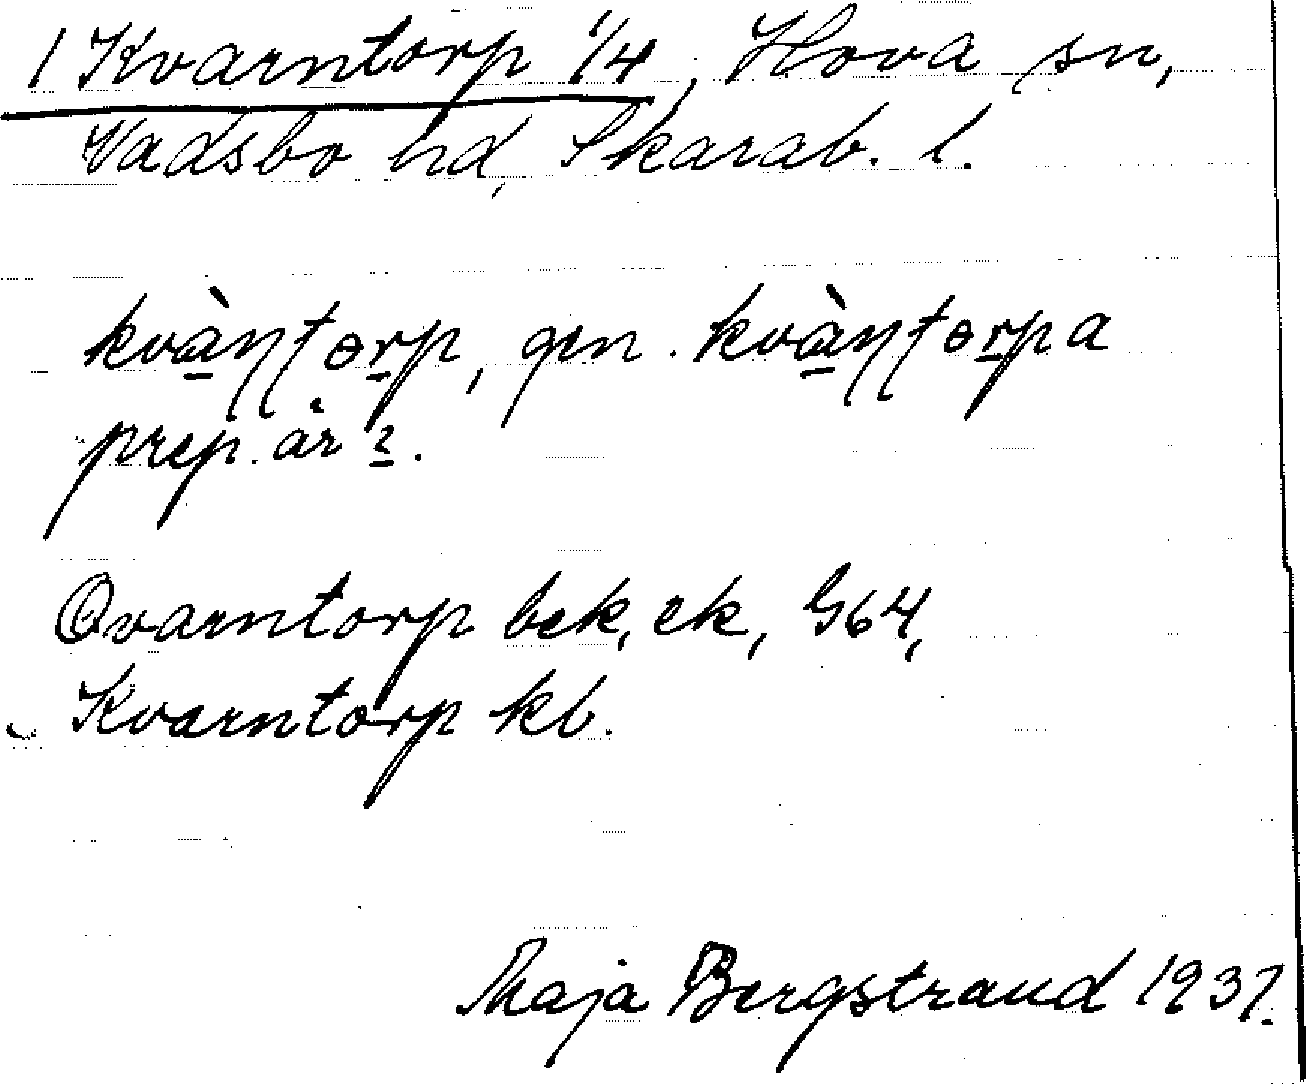 1 Kvarntorp 1/4, Hova sn,
Vadsbo hd, Skarab. l.
kvàṇṭɵrp, gen. kvàṇṭɵrpa
prep. är 2.
Qvarntorp bek, ek, G64,
Kvarntorp kb.
Maja Bergstrand 1937.